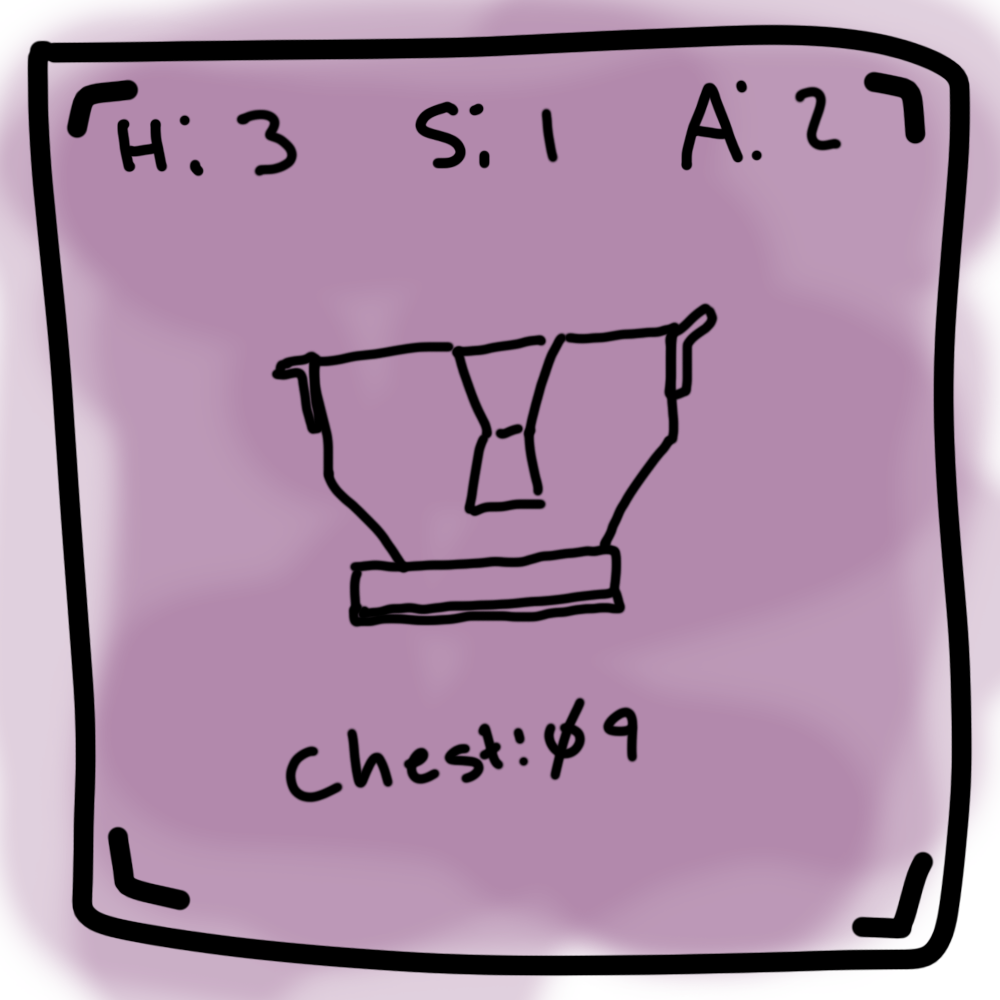 H: 3 S: 1 A: 2
Chest: Ø9